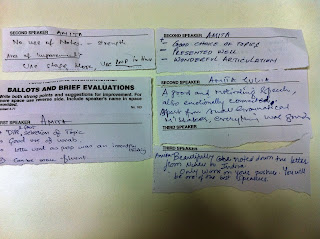 SECOND SPEAKER AMITA
No. use of Notes. - Strength
Area of Improvement
Use stage More, Use
BALLOTS AND BRIEF EVALUATIONS
Write both strong points and suggestions for improvement. For
more space use reverse side. Include speaker's name in space
FIRST SPEAKER AMITA
Diff. selection of Topic
Good use of vocab.
Letter used as prop was an
Can be more fluent
SECOND SPEAKER AMITA
GOOD CHOICE OF TOPICS
PRESENTED WELL
- WONDERFUL ARTICULATION
SECOND SPEAKER AMITA
A good and motivating speech,
also emotionally connected.
Apart from minor grammatical
mistakes, everything was good.
THIRD SPEAKER
THIRD SPEAKER
Amita Beautifully noted down the letter
from Nehru to Indira.
Only work on your gesture. You will
be one of our best speakers.